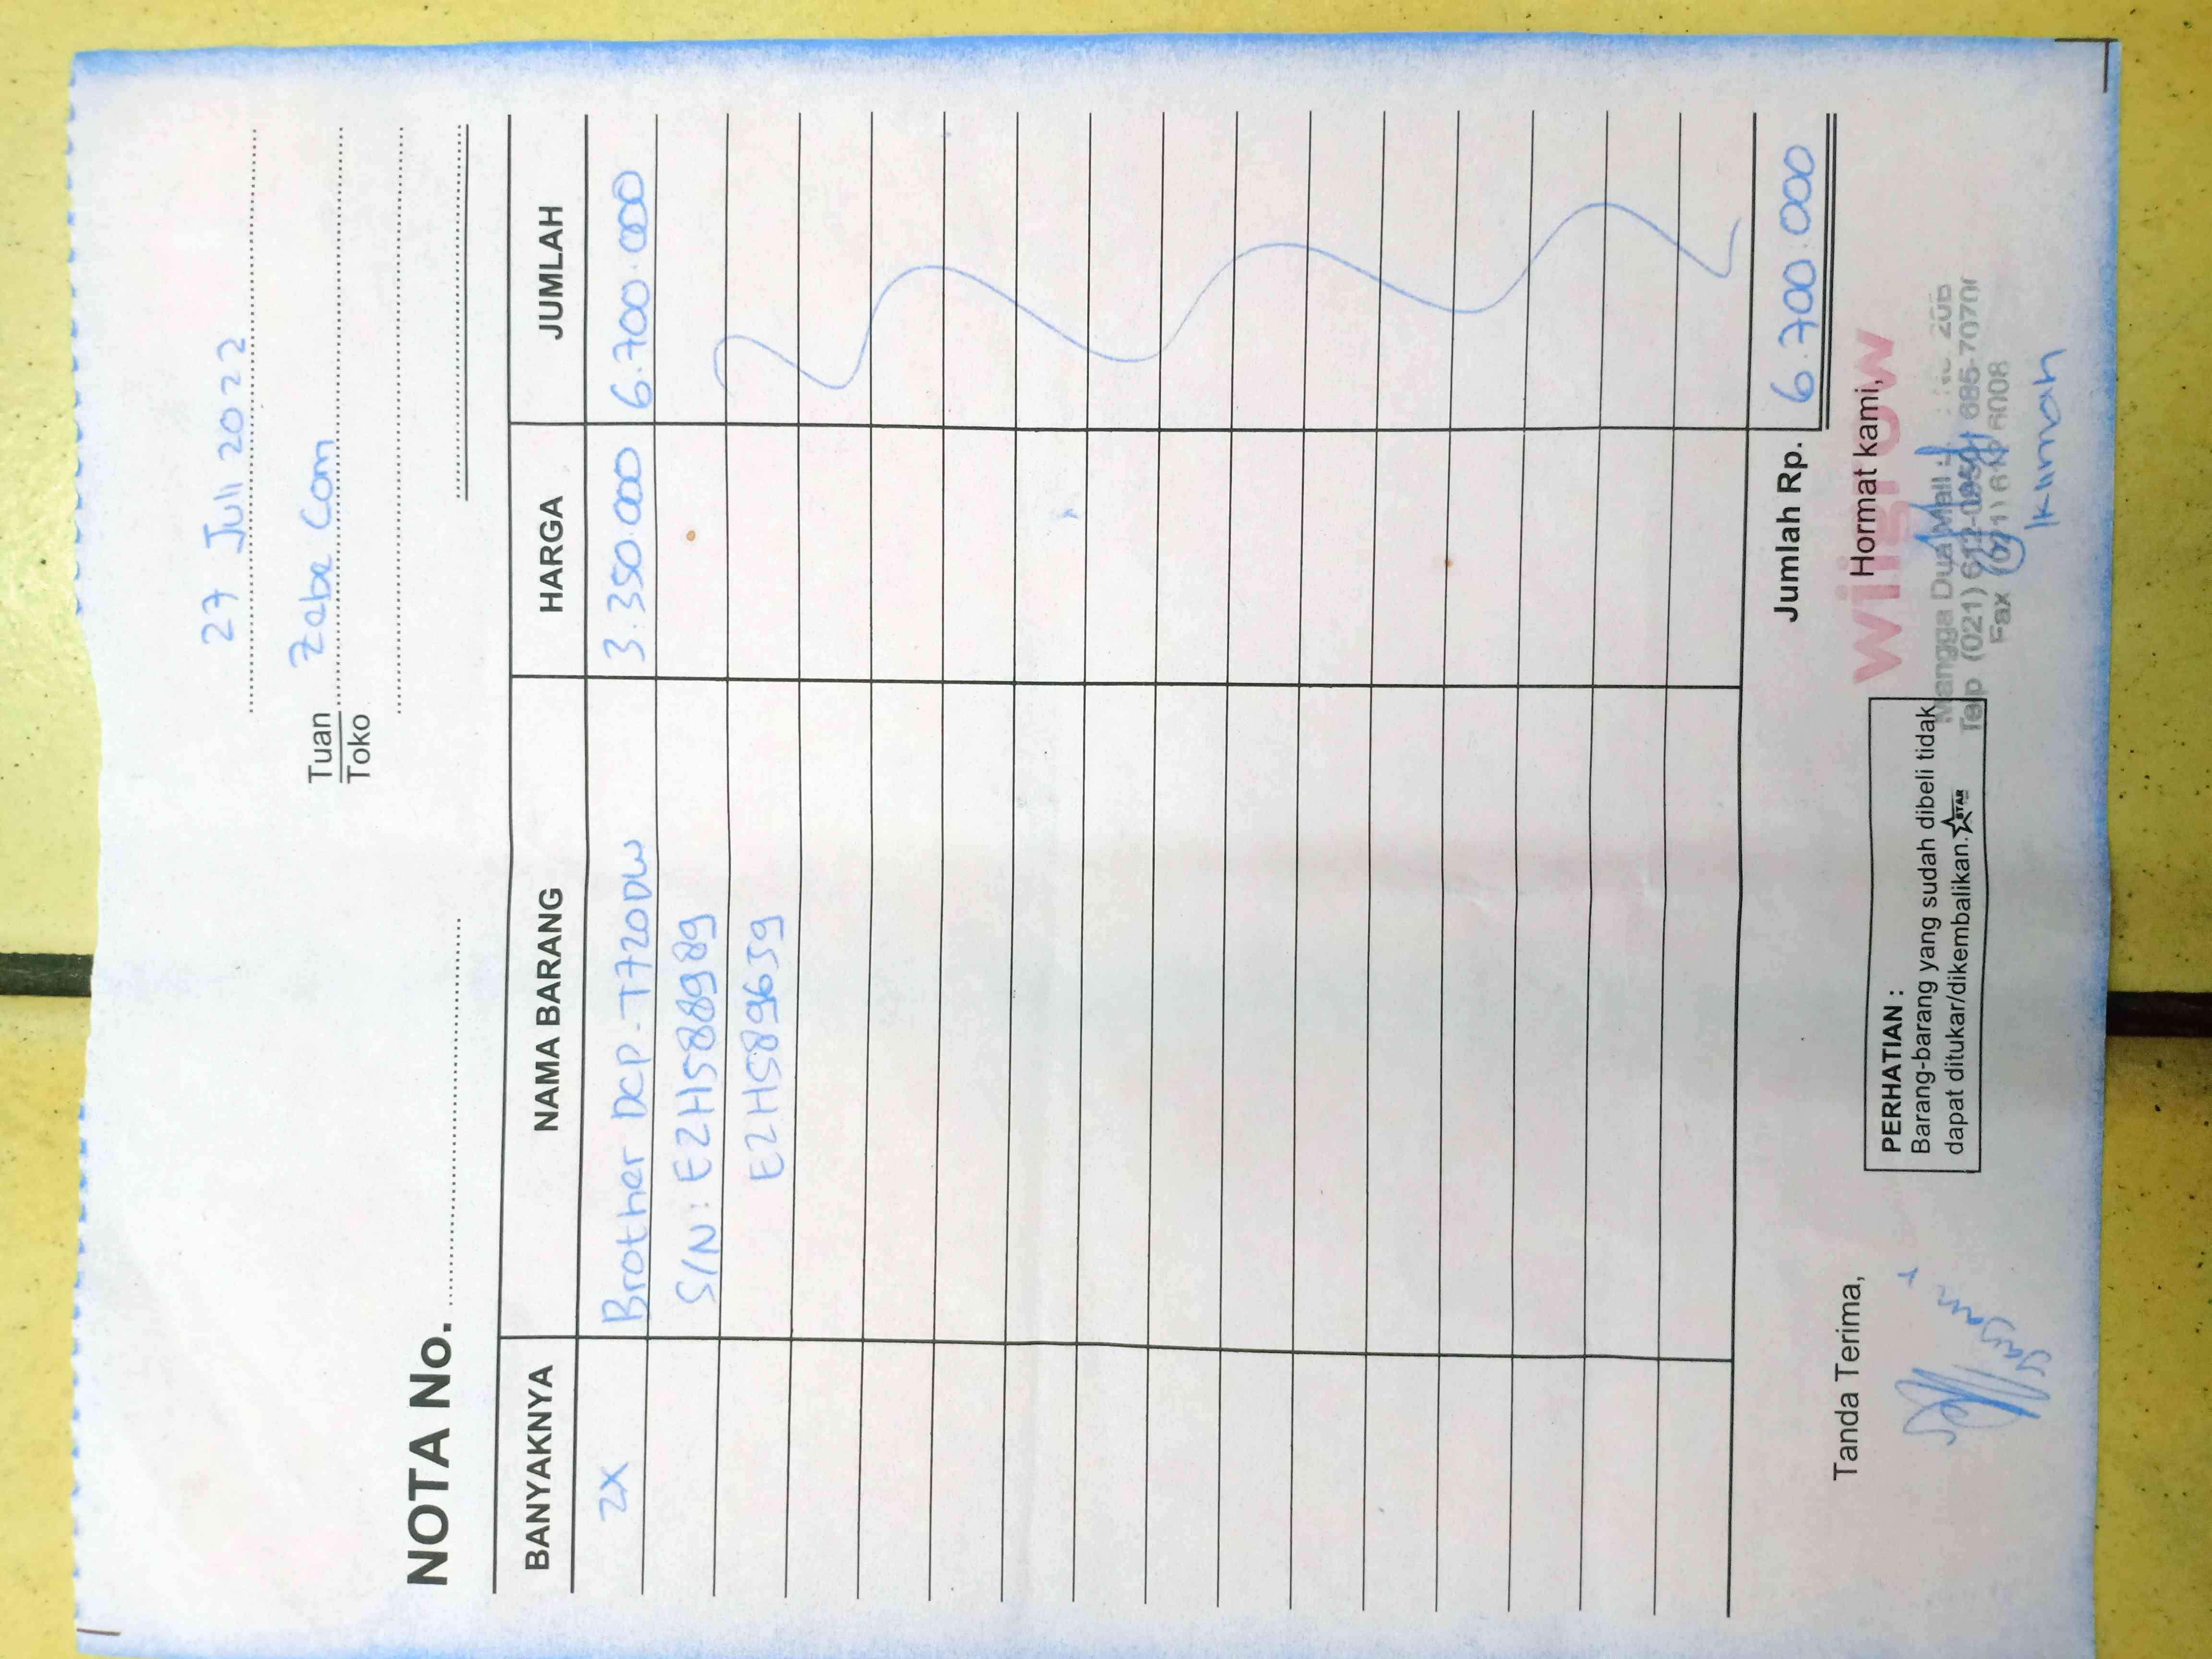 27 Juli 2022
Tuan Zebe Com
Toko
NOTA No.
BANYAKNYA NAMA BARANG HARGA JUMLAH
2X Brother DCP-T720DW 3.350.000 6.700.000
S/N: E2H1588989
E2H589659
Jumlah Rp. 6.700.000
Tanda Terima,
PERHATIAN :
Barang-barang yang sudah dibeli tidak
dapat ditukar/dikembalikan. STAR
Hormat kami,
Mangga Dua Mall
Telp (021) 612-0950
Fax (021)
Iklimah